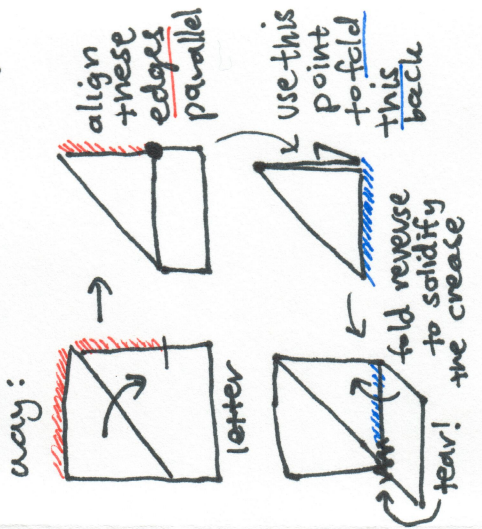 way:
letter
align
these
edges
parallel
use this
point
to fold
this
back
fold reverse
to solidify
the crease
tear!